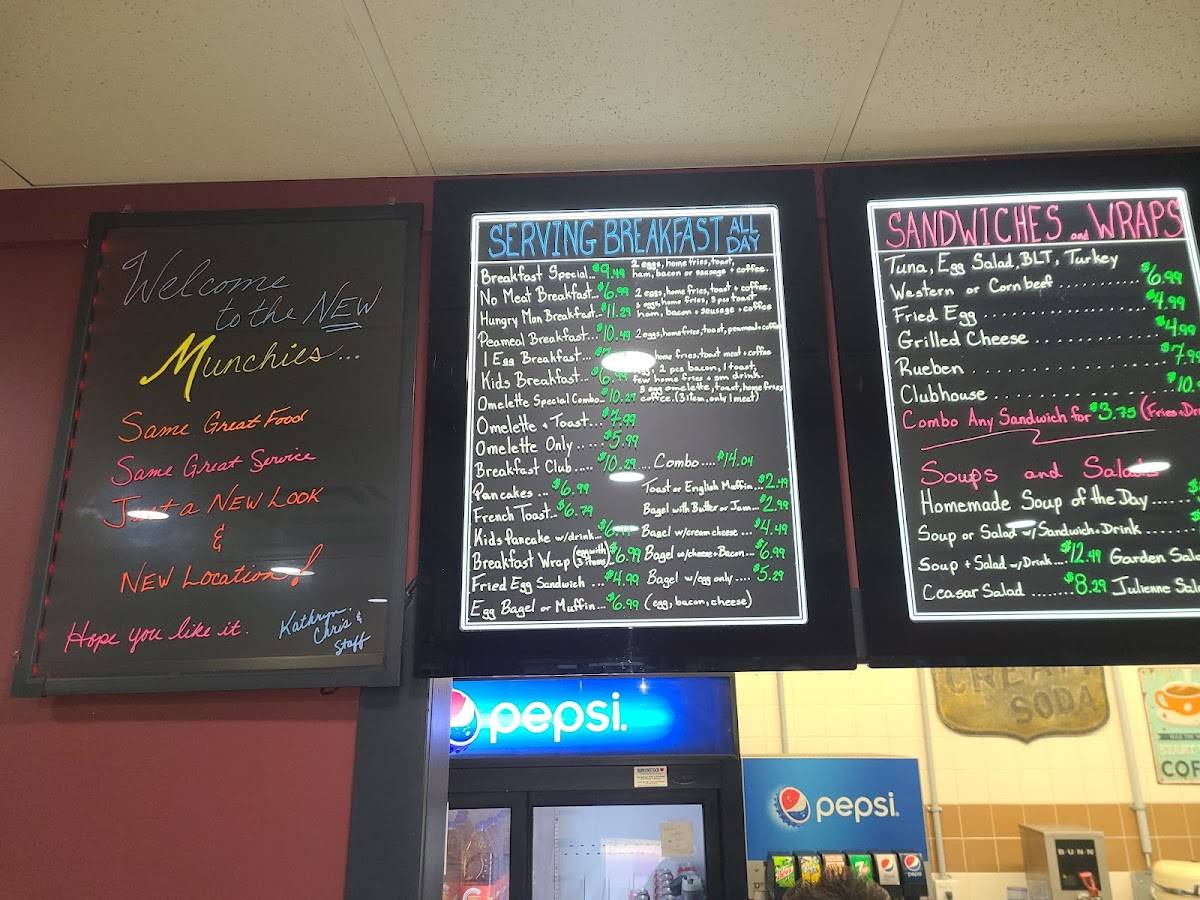 Welcome
to the NEW
Munchies...
Same Great Food
Same Great Service
Just a NEW LOOK
&
NEW LOCATION!
Hope you like it.
Kathryn
Chris &
Staff
SERVING BREAKFAST ALL DAY
Breakfast Special... $9.49 2 eggs, home fries, toast, ham, bacon or sausage + coffee.
No Meat Breakfast... $6.99 2 eggs, home fries, toast + coffee.
Hungry Man Breakfast... $11.29 eggs, home fries, 3 pcs toast ham, bacon + sausage + coffee
Peameal Breakfast... $10.49 2 eggs, home fries, toast, peameal + coffee
1 Egg Breakfast... home fries, toast meat + coffee
Kids Breakfast... $6.99 2 pcs bacon, 1 toast, few home fries + sm drink.
Omelette Special Combo... $10.29 3 egg omelette, toast, home fries coffee. (3 item, only 1 meat)
Omelette + Toast... $7.99
Omelette Only.... $5.99
Breakfast Club.... $10.29 .... Combo.... $14.04
Pancakes ... $6.99 Toast or English Muffin... $2.49
French Toast.. $6.79 Bagel with Butter or Jam... $2.99
Kids Pancake w/drink.. Bagel w/cream cheese ... $4.49
Breakfast Wrap (egg with 3 items) $6.99 Bagel w/cheese + Bacon... $6.99
Fried Egg Sandwich ... $4.99 Bagel w/egg only .... $5.29
Egg Bagel or Muffin... $6.99 (egg, bacon, cheese)
SANDWICHES and WRAPS
Tuna, Egg Salad, BLT, Turkey
Western or Cornbeef ........... $6.99
Fried Egg ................ $4.99
Grilled Cheese .............. $4.99
Rueben ................ $7.99
Clubhouse ................ $10.
Combo Any Sandwich for $3.75 (Fries + Dri
Soups and Salads
Homemade Soup of the Day .....
Soup or Salad w/Sandwich + Drink .....
Soup + Salad w/Drink .... $12.49 Garden Sala
Ceasar Salad ....... $8.29 Julienne Sal
pepsi.
pepsi.
CREAM
SODA
COF
BUNN
pepsi